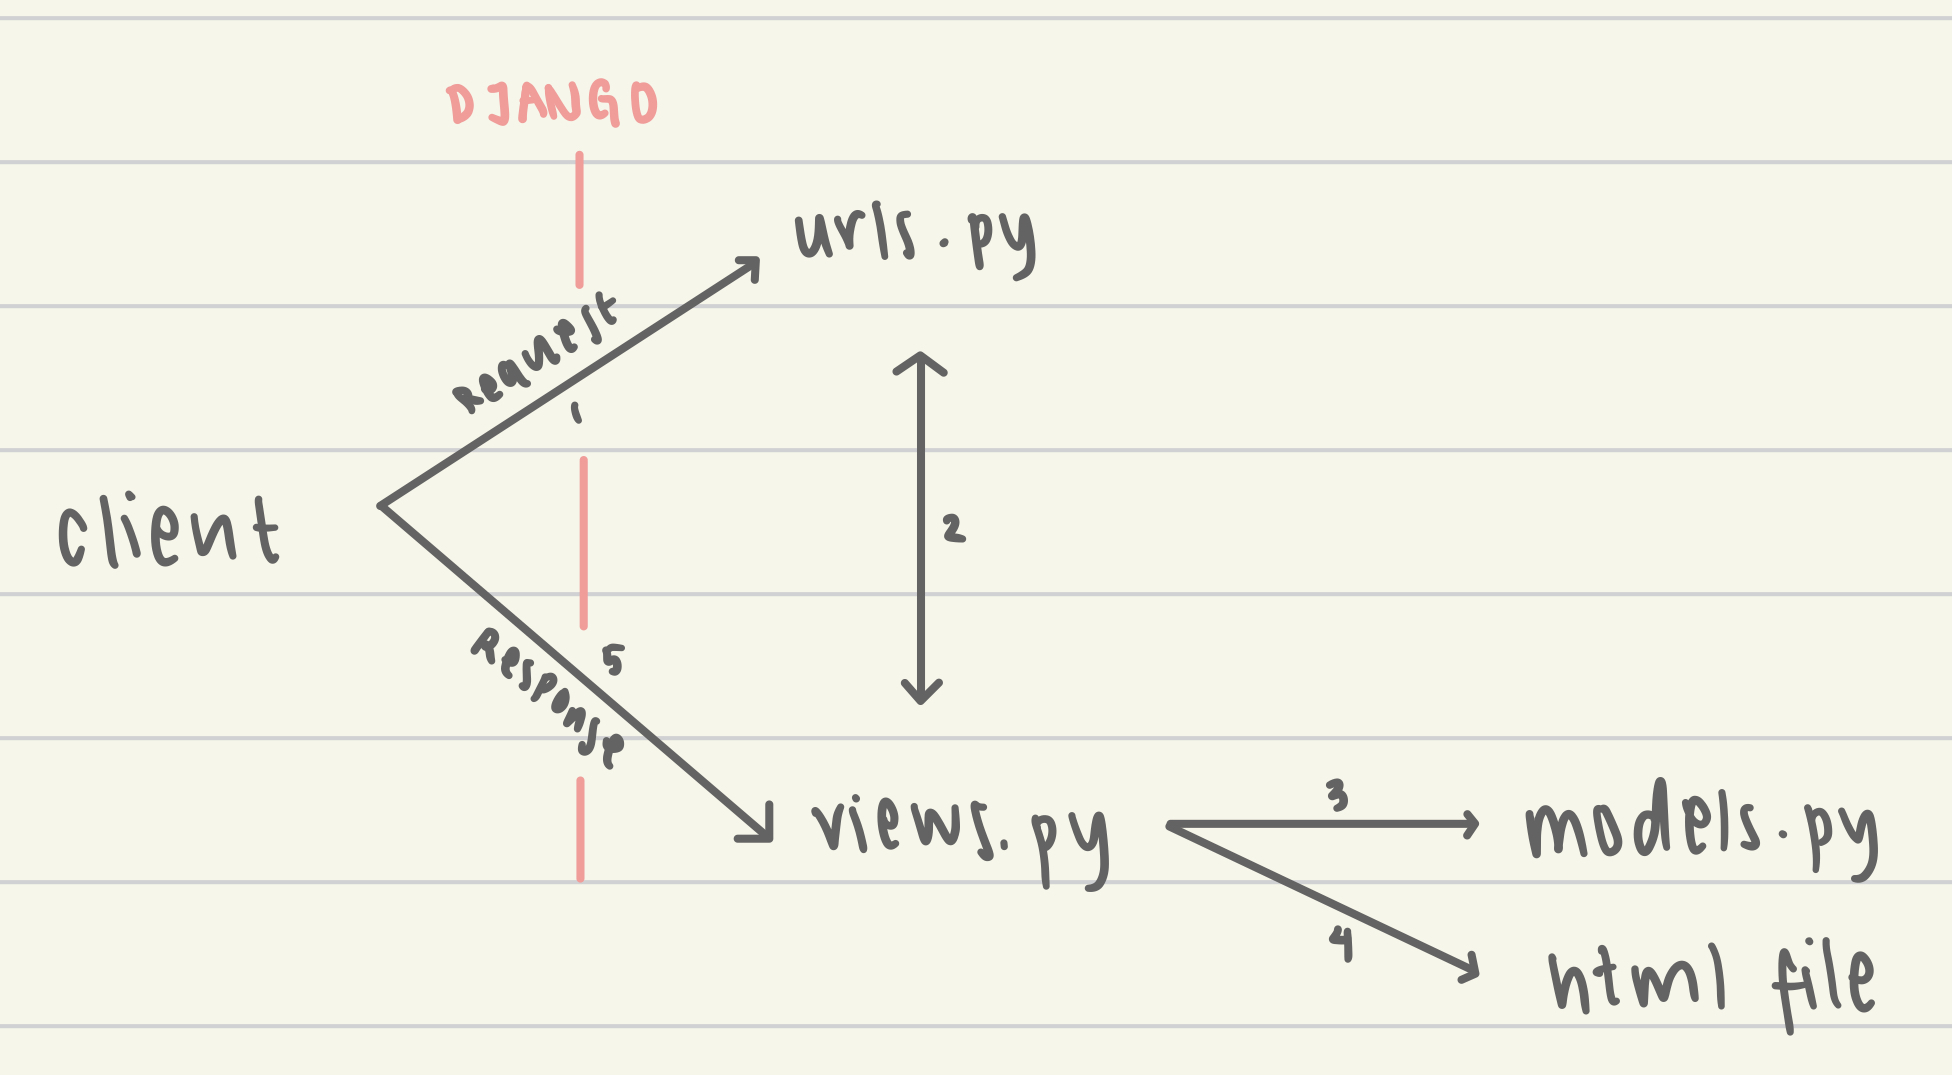 DJANGO
urls.py
Request
1
client
2
5
Response
views.py
3
models.py
4
html file